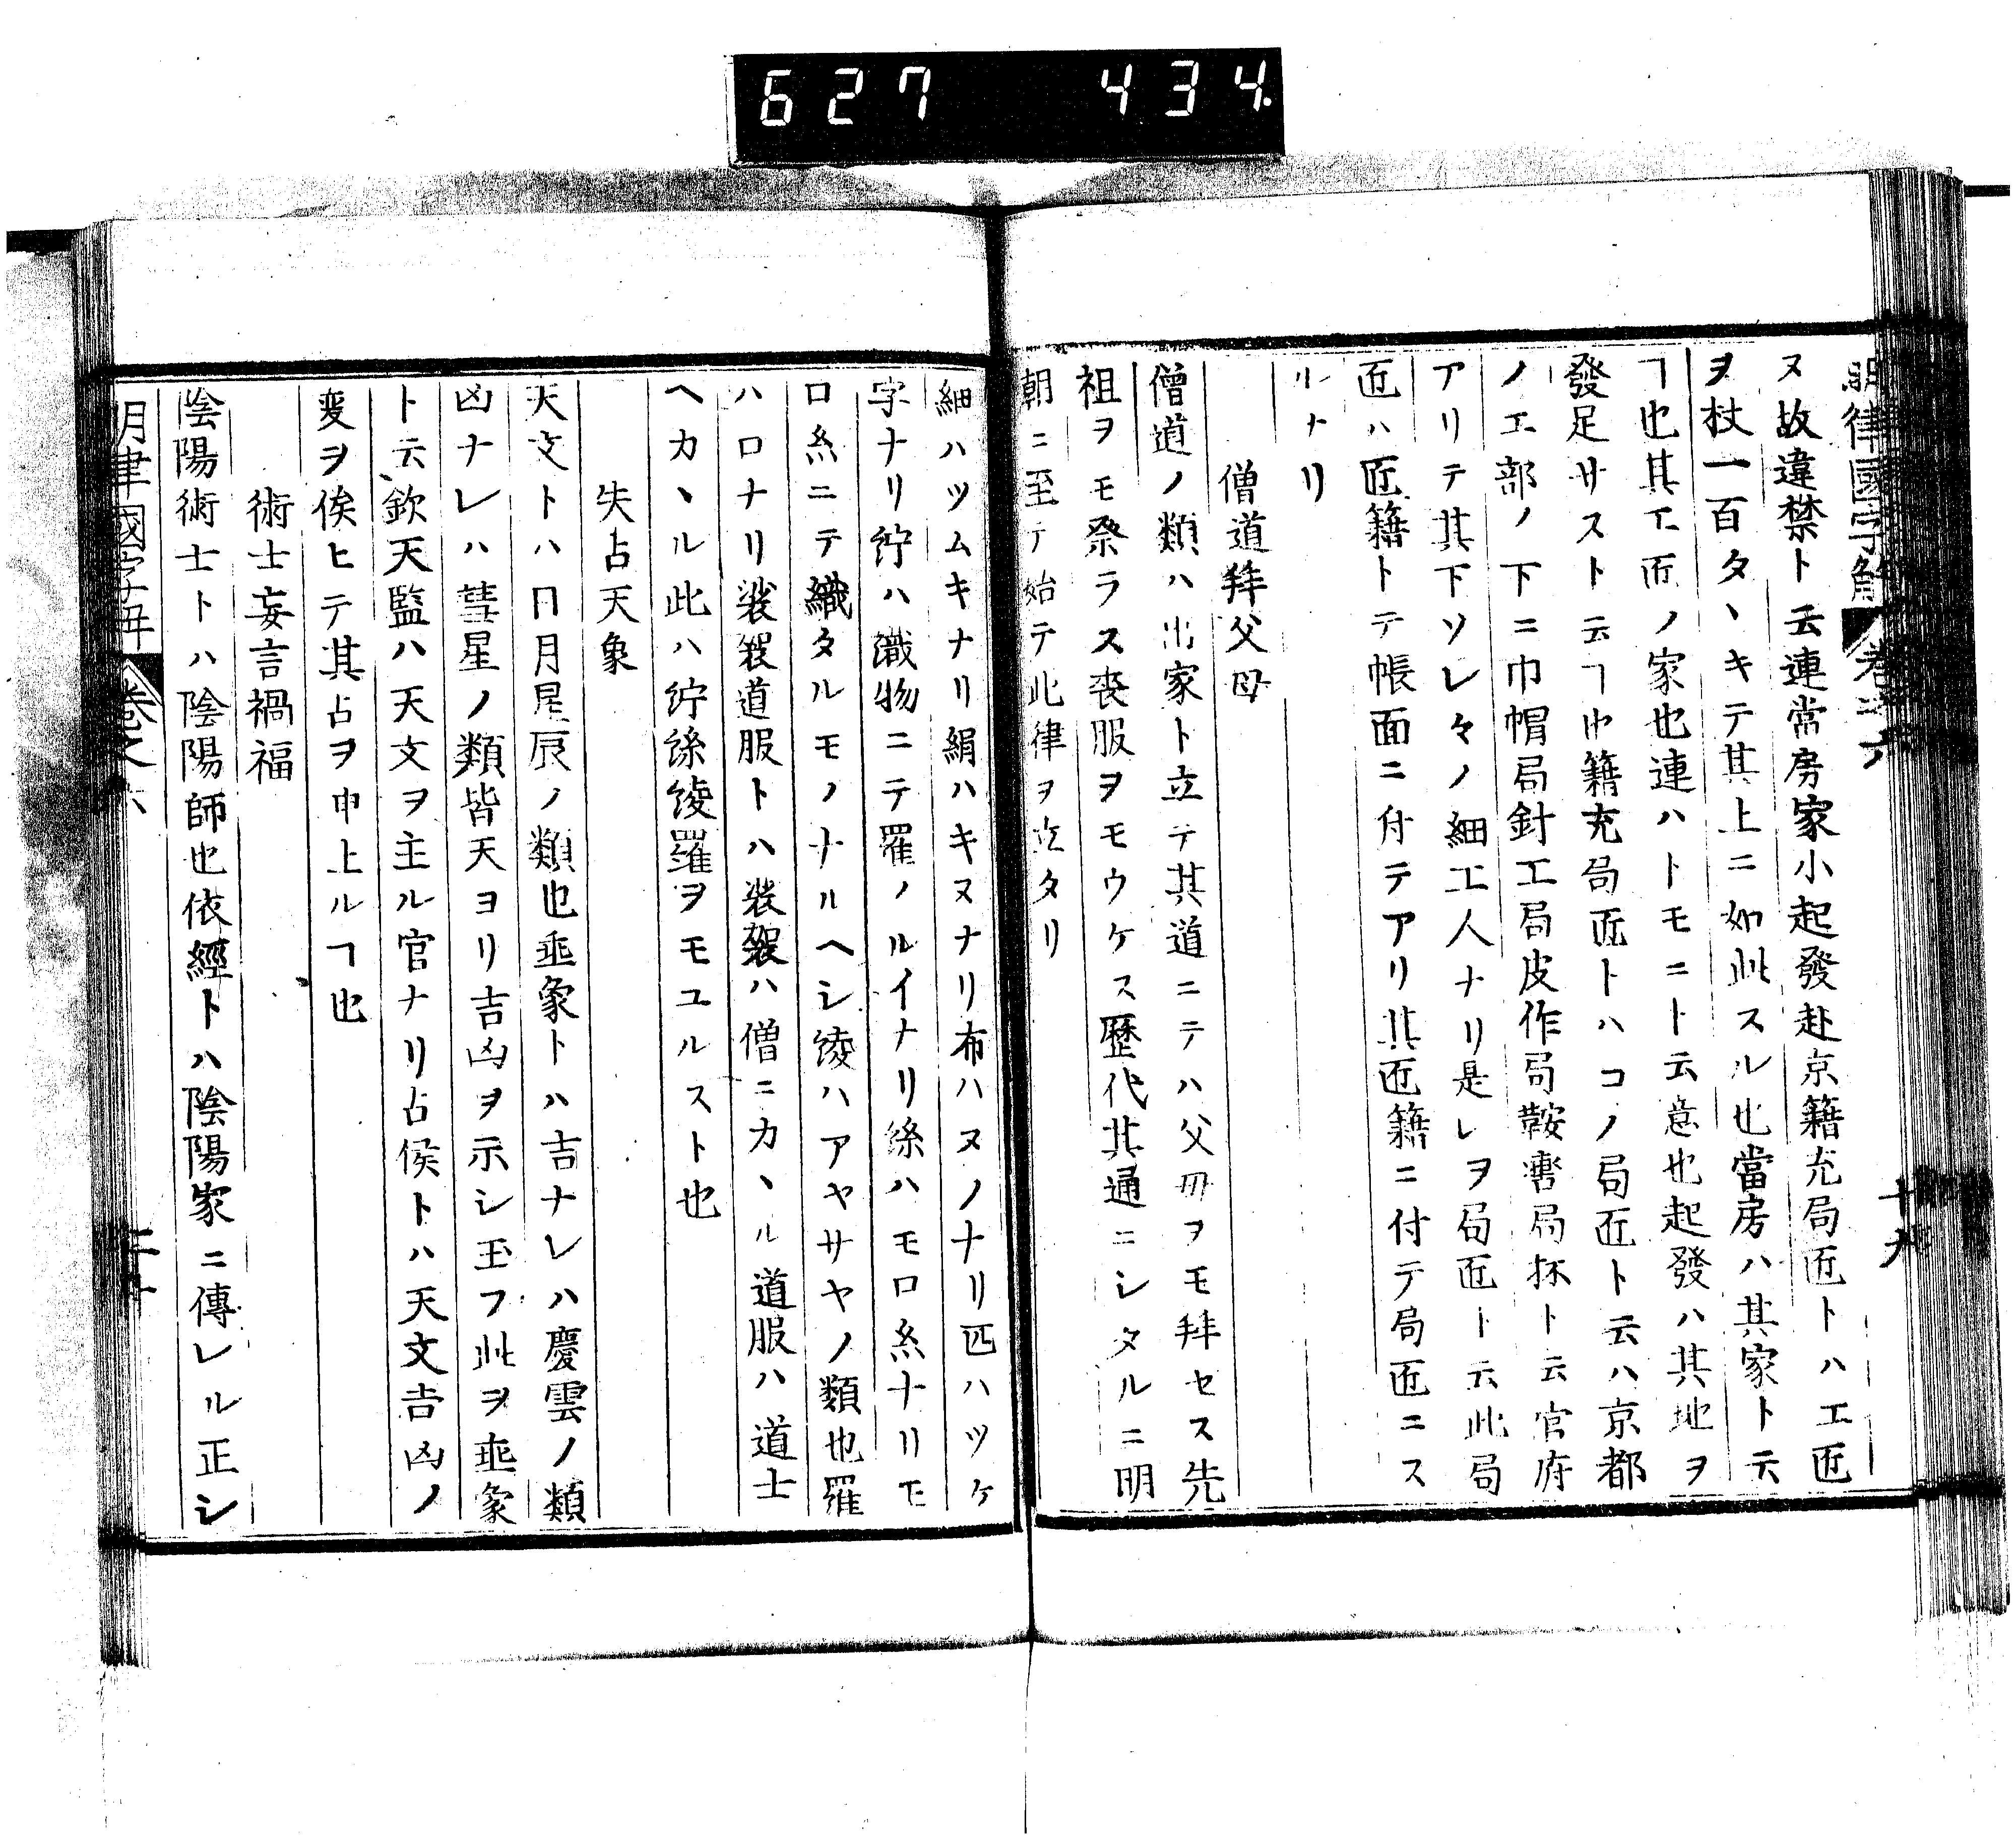 627 434
明律國字解 卷之六 十九
ヌ故違禁ト云連當房家小起發赴京籍充局匠トハエ匠
ヲ杖一百タヽキテ其上ニ如此スル也當房ハ其家ト云
ヿ也其工匠ノ家也連ハトモニト云意也起發ハ其地ヲ
發足サスト云ヿ也籍充局匠トハコノ局匠ト云ハ京都
ノ工部ノ下ニ巾帽局針工局皮作局鞍轡局抔ト云官府
アリテ其下ソレ々ノ細工人ナリ是レヲ局匠ト云此局
匠ハ匠籍トテ帳面ニ付テアリ其匠籍ニ付テ局匠ニス
ルナリ
僧道拜父母
僧道ノ類ハ出家ト立テ其道ニテハ父母ヲモ拜セス先
祖ヲモ祭ラス喪服ヲモウケス歷代其通ニシタルニ明
朝ニ至テ始テ此律ヲ立タリ
細ハツムキナリ絹ハキヌナリ布ハヌノナリ匹ハツケ
字ナリ紵ハ織物ニテ羅ノルイナリ絲ハモロ糸ナリモ
ロ糸ニテ織タルモノナルヘシ綾ハアヤサヤノ類也羅
ハロナリ袈裟道服トハ袈裟ハ僧ニカヽル道服ハ道士
ヘカヽル此ハ紵絲綾羅ヲモユルスト也
失占天象
天文トハ日月星辰ノ類也垂象トハ吉ナレハ慶雲ノ類
凶ナレハ彗星ノ類皆天ヨリ吉凶ヲ示シ玉フ此ヲ垂象
ト云欽天監ハ天文ヲ主ル官ナリ占候トハ天文吉凶ノ
変ヲ候ヒテ其占ヲ申上ルヿ也
術士妄言禍福
陰陽術士トハ陰陽師也依經トハ陰陽家ニ傳レル正シ
明律國字解 卷之六 二十